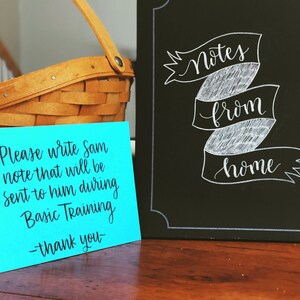 Notes
from
home
Please write Sam
note that will be
sent to him during
Basic Training
-thank you-